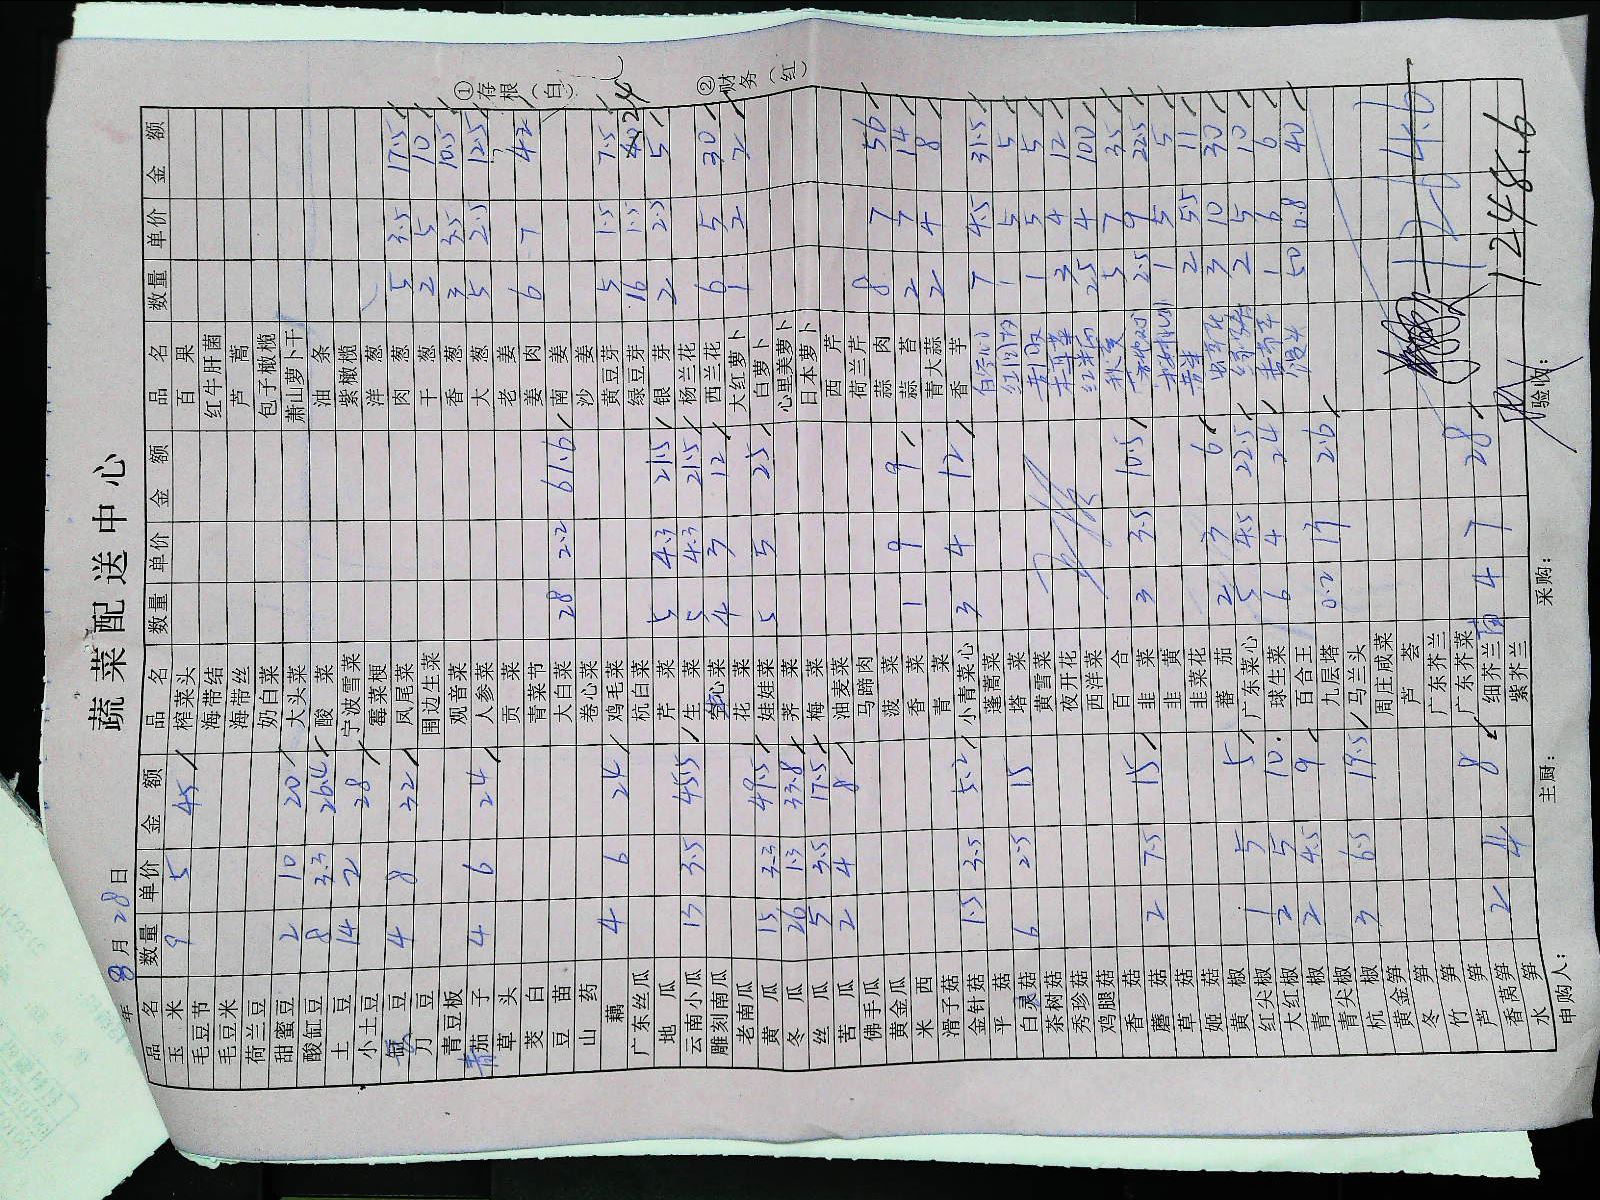 蔬菜配送中心
年 8月28日
品名 数量 单价 金额 品名 数量 单价 金额 品名 数量 单价 金额
玉米 9 5 45 榨菜头 百果
毛豆节 海带结 红牛肝菌
毛豆米 海带丝 芦蒿
荷兰豆 奶白菜 包子橄榄
甜蜜豆 2 10 20 大头菜 萧山萝卜干
酸缸豆 8 3.3 26.4 酸菜 油条
土豆 14 2 28 宁波雪菜 紫橄榄
小土豆 霉菜梗 洋葱
豆 4 8 32 凤尾菜 肉葱 5 3.5 17.5
刀豆 围边生菜 干葱 2 5 10
青豆板 观音菜 香葱 3 3.5 10.5
青茄子 4 6 24 人参菜 大葱 5 2.5 12.5
草头 贡菜 老姜
茭白 青菜节 姜肉 6 7 42
豆苗 大白菜 28 2.2 61.6 南姜
山药 卷心菜 沙姜
藕 4 6 24 鸡毛菜 黄豆芽 5 1.5 7.5
广东丝瓜 杭白菜 绿豆芽 16 1.5 24
地瓜 芹菜 5 4.3 21.5 银芽 2 2.5 5
云南小瓜 13 3.5 45.5 生菜 5 4.3 21.5 杨兰花
雕刻南瓜 空心菜 4 3 12 西兰花 6 5 30
老南瓜 花菜 大红萝卜 1 2 2
黄瓜 15 3.3 49.5 娃娃菜 5 5 25 白萝卜
冬瓜 26 1.3 33.8 荠菜 心里美萝卜
丝瓜 5 3.5 17.5 梅菜 日本萝卜
苦瓜 2 4 8 油麦菜 西芹
佛手瓜 马蹄肉 荷兰芹
黄金瓜 菠菜 蒜肉 8 7 56
米西 香菜 1 9 9 蒜苔 2 7 14
滑子菇 青菜 青大蒜 2 4 8
金针菇 1.5 3.5 5.2 小青菜心 3 4 12 香芋
平菇 蓬蒿菜 7 4.5 31.5
白灵菇 6 2.5 15 塔菜 1 5 5
茶树菇 黄雪菜 1 5 5
秀珍菇 夜开花 3 4 12
鸡腿菇 西洋菜 25 4 100
香菇 百合 5 7 35
蘑菇 2 7.5 15 韭菜 3 3.5 10.5 2.5 9 22.5
草菇 韭黄 1 5 5
姬菇 韭菜花 2 5.5 11
黄椒 蕃茄 2 3 6 3 10 30
红尖椒 1 5 5 广东菜心 5 4.5 22.5 2 5 10
大红椒 2 5 10 球生菜 6 4 24 1 6 6
青椒 2 4.5 9 百合王 小馒头 50 0.8 40
青尖椒 九层塔 0.2 13 2.6
杭椒 3 6.5 19.5 马兰头
黄金笋 周庄咸菜
冬笋 芦荟
竹笋 广东芥兰
芦笋 广东芥菜
香莴笋 2 4 8 细芥兰 4 7 28
水笋 紫芥兰
1248.6
申购人： 主厨： 采购： 验收：
①存根（白）
②财务（红）